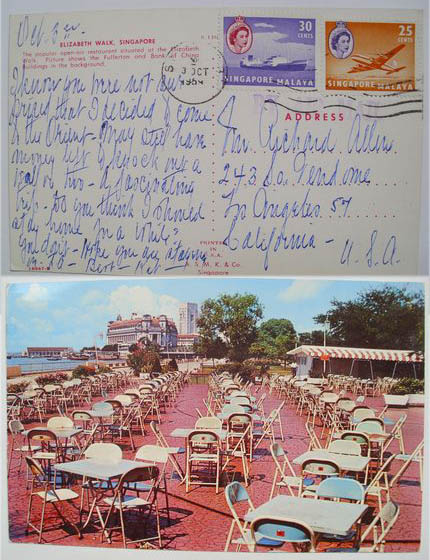 Oct. 3
ELIZABETH WALK, SINGAPORE
The popular open-air restaurant situated at the Elizabeth
Walk. Picture shows the Fullerton and Bank of China
buildings in the background.
I know you were not sur-
prised that I decided to come
to the Orient - May still have
money left to knock out a
wall or two - A fascinating
trip - Do you think I should
at my home in a while?
Best
30
CENTS
SINGAPORE MALAYA
25
CENTS
SINGAPORE MALAYA
3 OCT
ADDRESS
Mr. Richard Allen
243 So. Vendome
Los Angeles 57
California -
U.S.A.
PRINTED
IN
U.S.A.
A. S. M. K. & Co.
Singapore